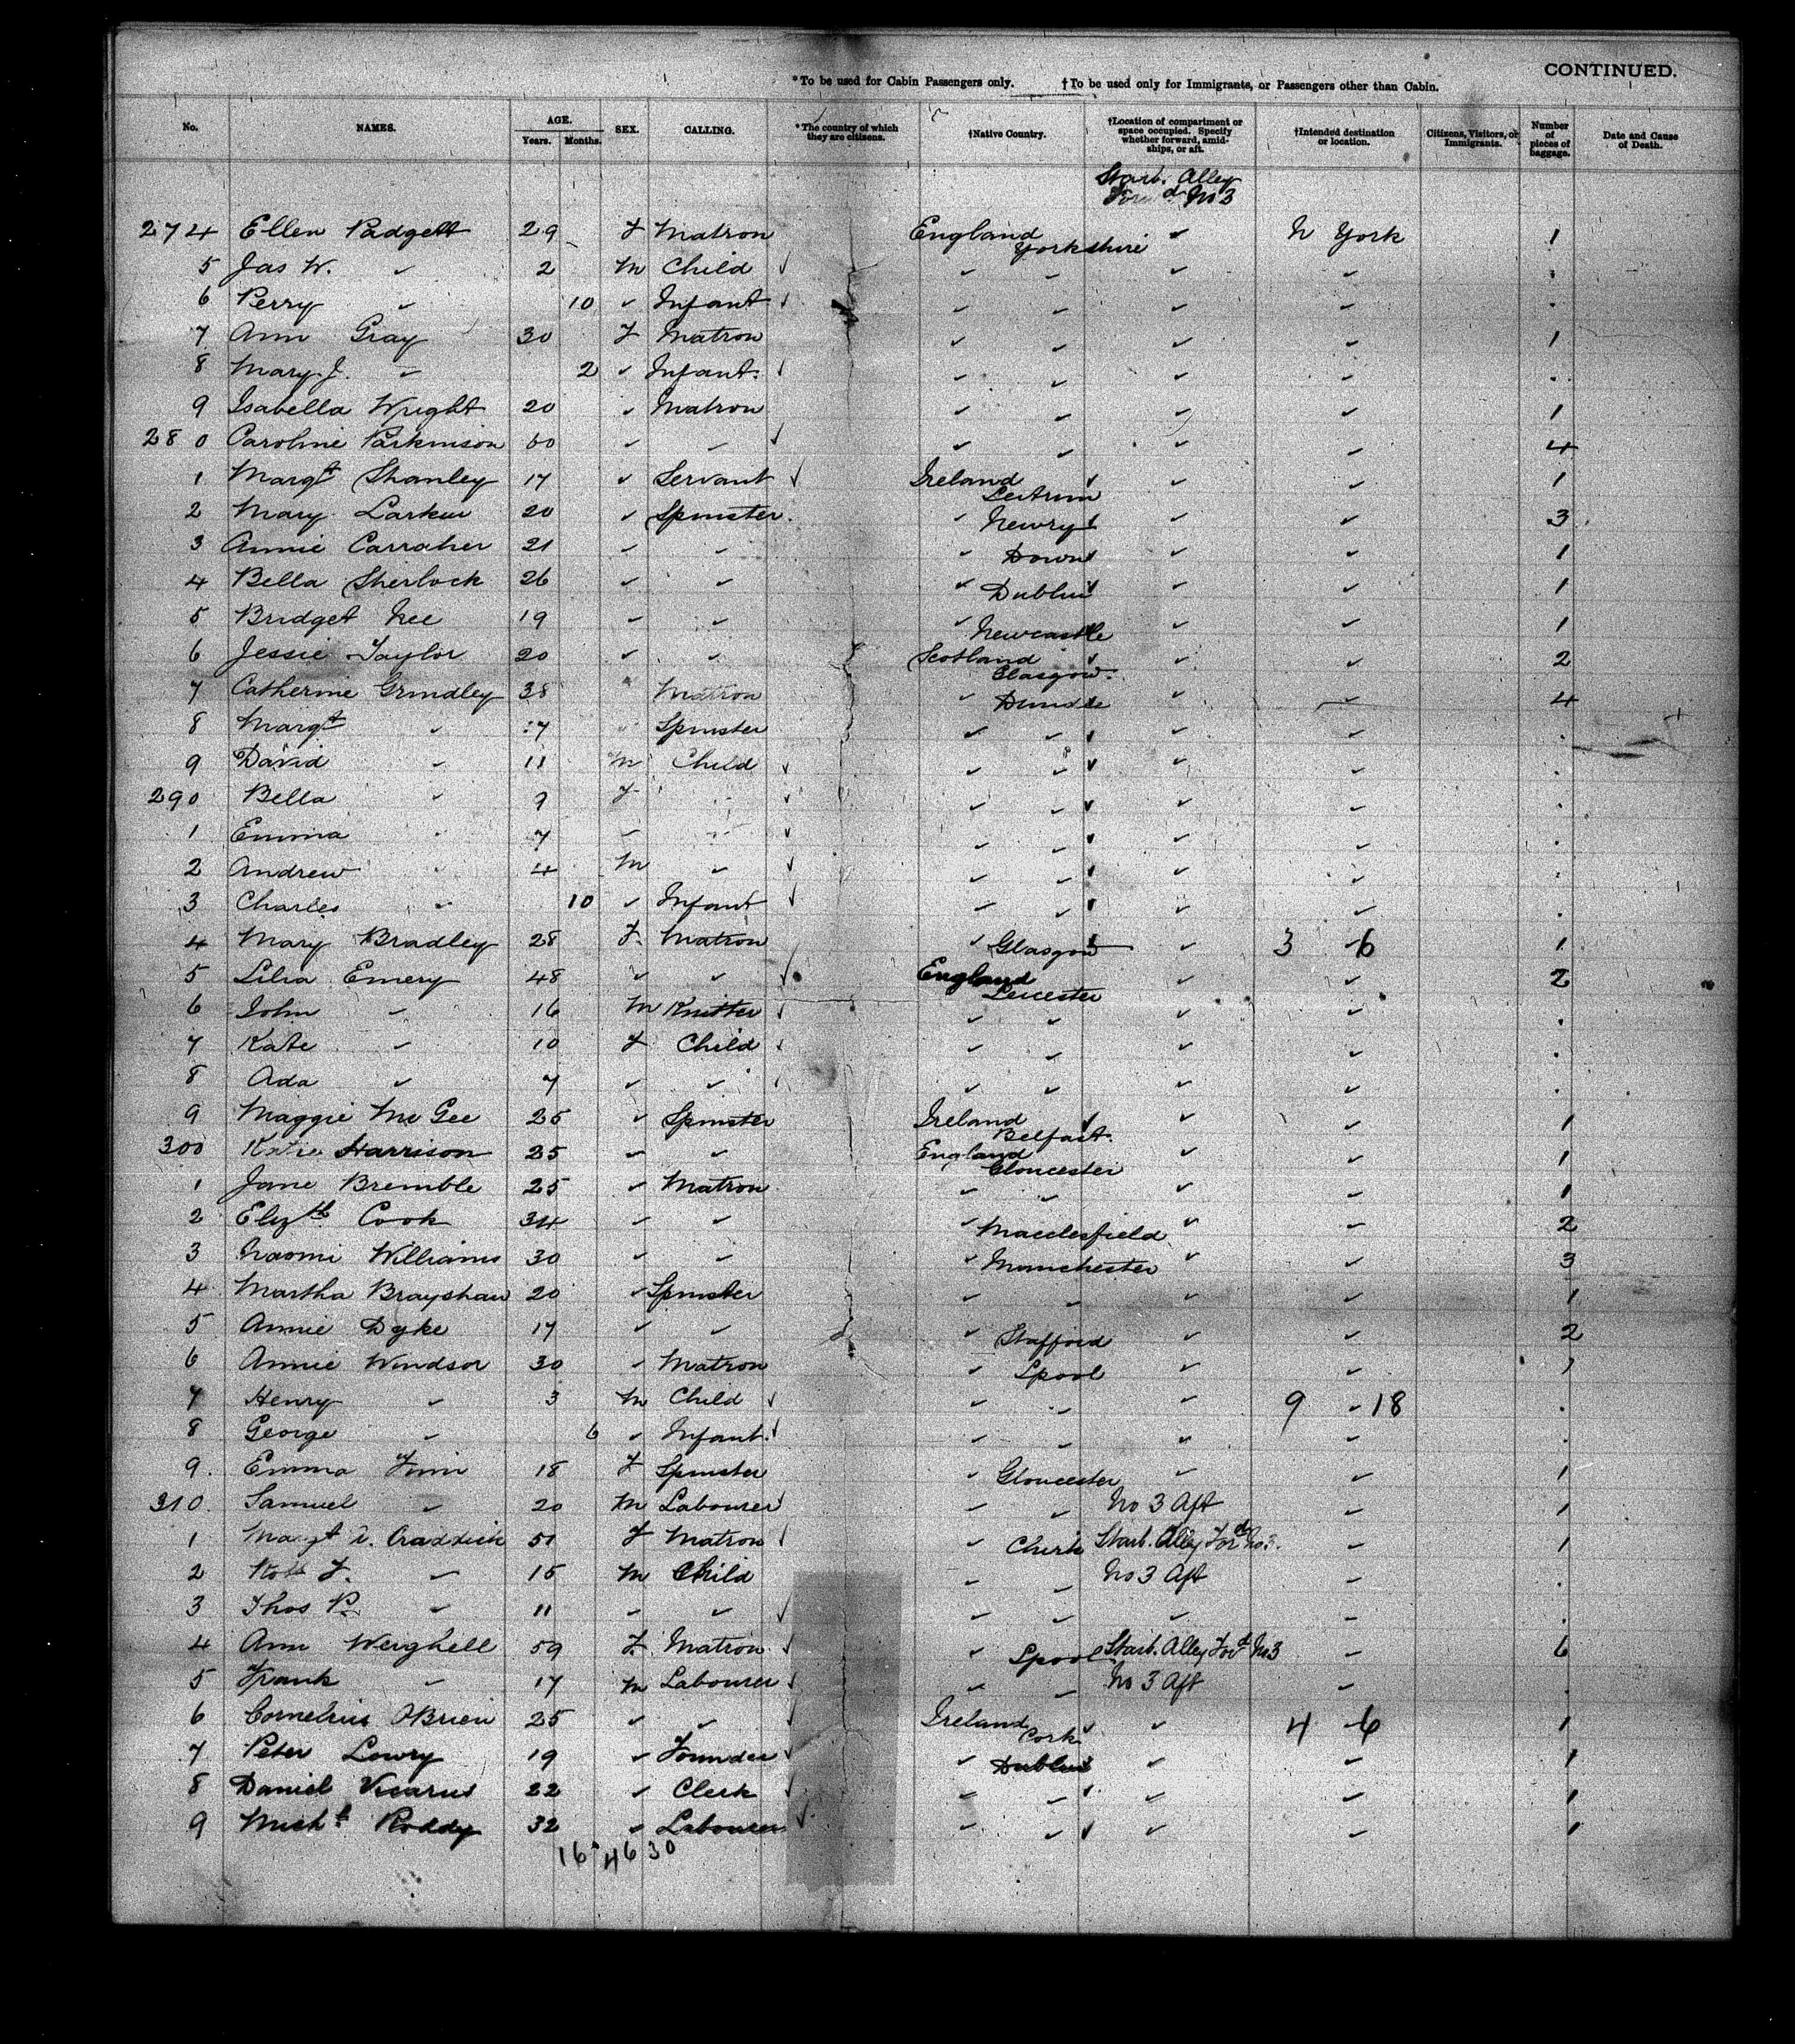 CONTINUED.
*To be used for Cabin Passengers only. †To be used only for Immigrants, or Passengers other than Cabin.
No. NAMES. AGE. Years. Months. SEX. CALLING. *The country of which they are citizens. †Native Country. †Location of compartment or space occupied. Specify whether forward, amidships, or aft. †Intended destination or location. Citizens, Visitors, or Immigrants. Number of pieces of baggage. Date and Cause of Death.
Starb. Alley
For'd No 3
274 Ellen Padgett 29 F Matron England Yorkshire ✓ N York 1
5 Jas W. ✓ 2 M Child ✓ ✓ ✓ ✓ ✓
6 Perry ✓ 10 ✓ Infant ✓ ✓ ✓ ✓ ✓
7 Ann Gray 30 F Matron ✓ ✓ ✓ ✓ 1
8 Mary J. ✓ 2 ✓ Infant. ✓ ✓ ✓ ✓ ✓
9 Isabella Wright 20 ✓ Matron ✓ ✓ ✓ ✓ 1
280 Caroline Parkinson 60 ✓ ✓ ✓ ✓ ✓ ✓ ✓ 4
1 Margt Shanley 17 ✓ Servant ✓ Ireland Leitrim ✓ ✓ 1
2 Mary Larkin 20 ✓ Spinster. ✓ Newry ✓ ✓ 3
3 Annie Carraher 21 ✓ ✓ ✓ Down ✓ ✓ 1
4 Bella Sherlock 26 ✓ ✓ ✓ Dublin ✓ ✓ 1
5 Bridget Nee 19 ✓ ✓ ✓ Newcastle ✓ ✓ 1
6 Jessie Taylor 20 ✓ ✓ Scotland Glasgow. ✓ ✓ 2
7 Catherine Grindley 38 Matron ✓ Dundee ✓ ✓ 4
8 Margt ✓ 17 Spinster ✓ ✓ ✓ ✓
9 David ✓ 11 M Child ✓ ✓ ✓ ✓ ✓
290 Bella ✓ 9 F ✓ ✓ ✓ ✓ ✓
1 Emma 7 ✓ ✓ ✓ ✓ ✓ ✓
2 Andrew 4 M ✓ ✓ ✓ ✓ ✓ ✓
3 Charles ✓ 10 ✓ Infant ✓ ✓ ✓ ✓ ✓
4 Mary Bradley 28 F. Matron ✓ Glasgow ✓ 3 6 1
5 Lilia Emery 48 ✓ ✓ ✓ England Leicester ✓ ✓ 2
6 John ✓ 16 M Knitter ✓ ✓ ✓ ✓ ✓
7 Kate ✓ 10 F Child ✓ ✓ ✓ ✓
8 Ada ✓ 7 ✓ ✓ ✓ ✓ ✓ ✓
9 Maggie McGee 25 ✓ Spinster Ireland Belfast. ✓ ✓ 1
300 Katie Harrison 25 ✓ ✓ England Gloucester ✓ ✓ 1
1 Jane Bremble 25 ✓ Matron ✓ ✓ ✓ ✓ 1
2 Elizth Cook 34 ✓ ✓ ✓ Macclesfield ✓ ✓ 2
3 Naomi Williams 30 ✓ ✓ ✓ Manchester ✓ ✓ 3
4 Martha Brayshaw 20 ✓ Spinster ✓ ✓ ✓ ✓ 1
5 Annie Dyke 17 ✓ ✓ ✓ Stafford ✓ ✓ 2
6 Annie Windsor 30 ✓ Matron ✓ Lpool ✓ ✓ 1
7 Henry ✓ 3 M Child ✓ ✓ ✓ ✓ 9 18
8 George ✓ 6 ✓ Infant. ✓ ✓ ✓ ✓ ✓
9. Emma 18 F Spinster ✓ Gloucester ✓ ✓ 1
310. Samuel ✓ 20 M Labourer ✓ ✓ ✓ No 3 Aft ✓ 1
1 Margt Craddick 51 F Matron ✓ ✓ Chirk Starb. Alley Ford No 3. ✓ 1
2 F. ✓ 15 M Child ✓ ✓ No 3 Aft ✓
3 Thos P. ✓ 11 ✓ ✓ ✓ ✓ ✓ ✓ ✓
4 Ann Weighell 59 F. Matron ✓ ✓ Lpool Starb. Alley Ford No 3 ✓ 6
5 Frank ✓ 17 M Labourer ✓ ✓ ✓ No 3 Aft ✓
6 Cornelius OBrien 25 ✓ ✓ ✓ Ireland Cork ✓ ✓ 4 6 1
7 Peter Lowry 19 ✓ Founder ✓ ✓ Dublin ✓ ✓ 1
8 Daniel 22 ✓ Clerk ✓ ✓ ✓ ✓ ✓ 1
9 Michl Roddy 32 ✓ Labourer ✓ ✓ ✓ ✓ ✓ 1
16 4630